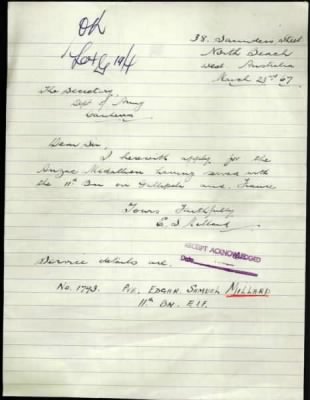 OK
38. Saunders Street
North Beach
West Australia
March 23rd 67
The Secretary
Dept of Army
Canberra
Dear Sir,
I herewith apply for the
Anzac Medallion having served with
the 11th Bn on Gallipoli and France
Yours Faithfully
E. S Millard
RECEIPT ACKNOWLEDGED
Date
Service details are.
No. 1793. Pte. EDGAR SAMUEL MILLARD
11th BN. E.I.F.